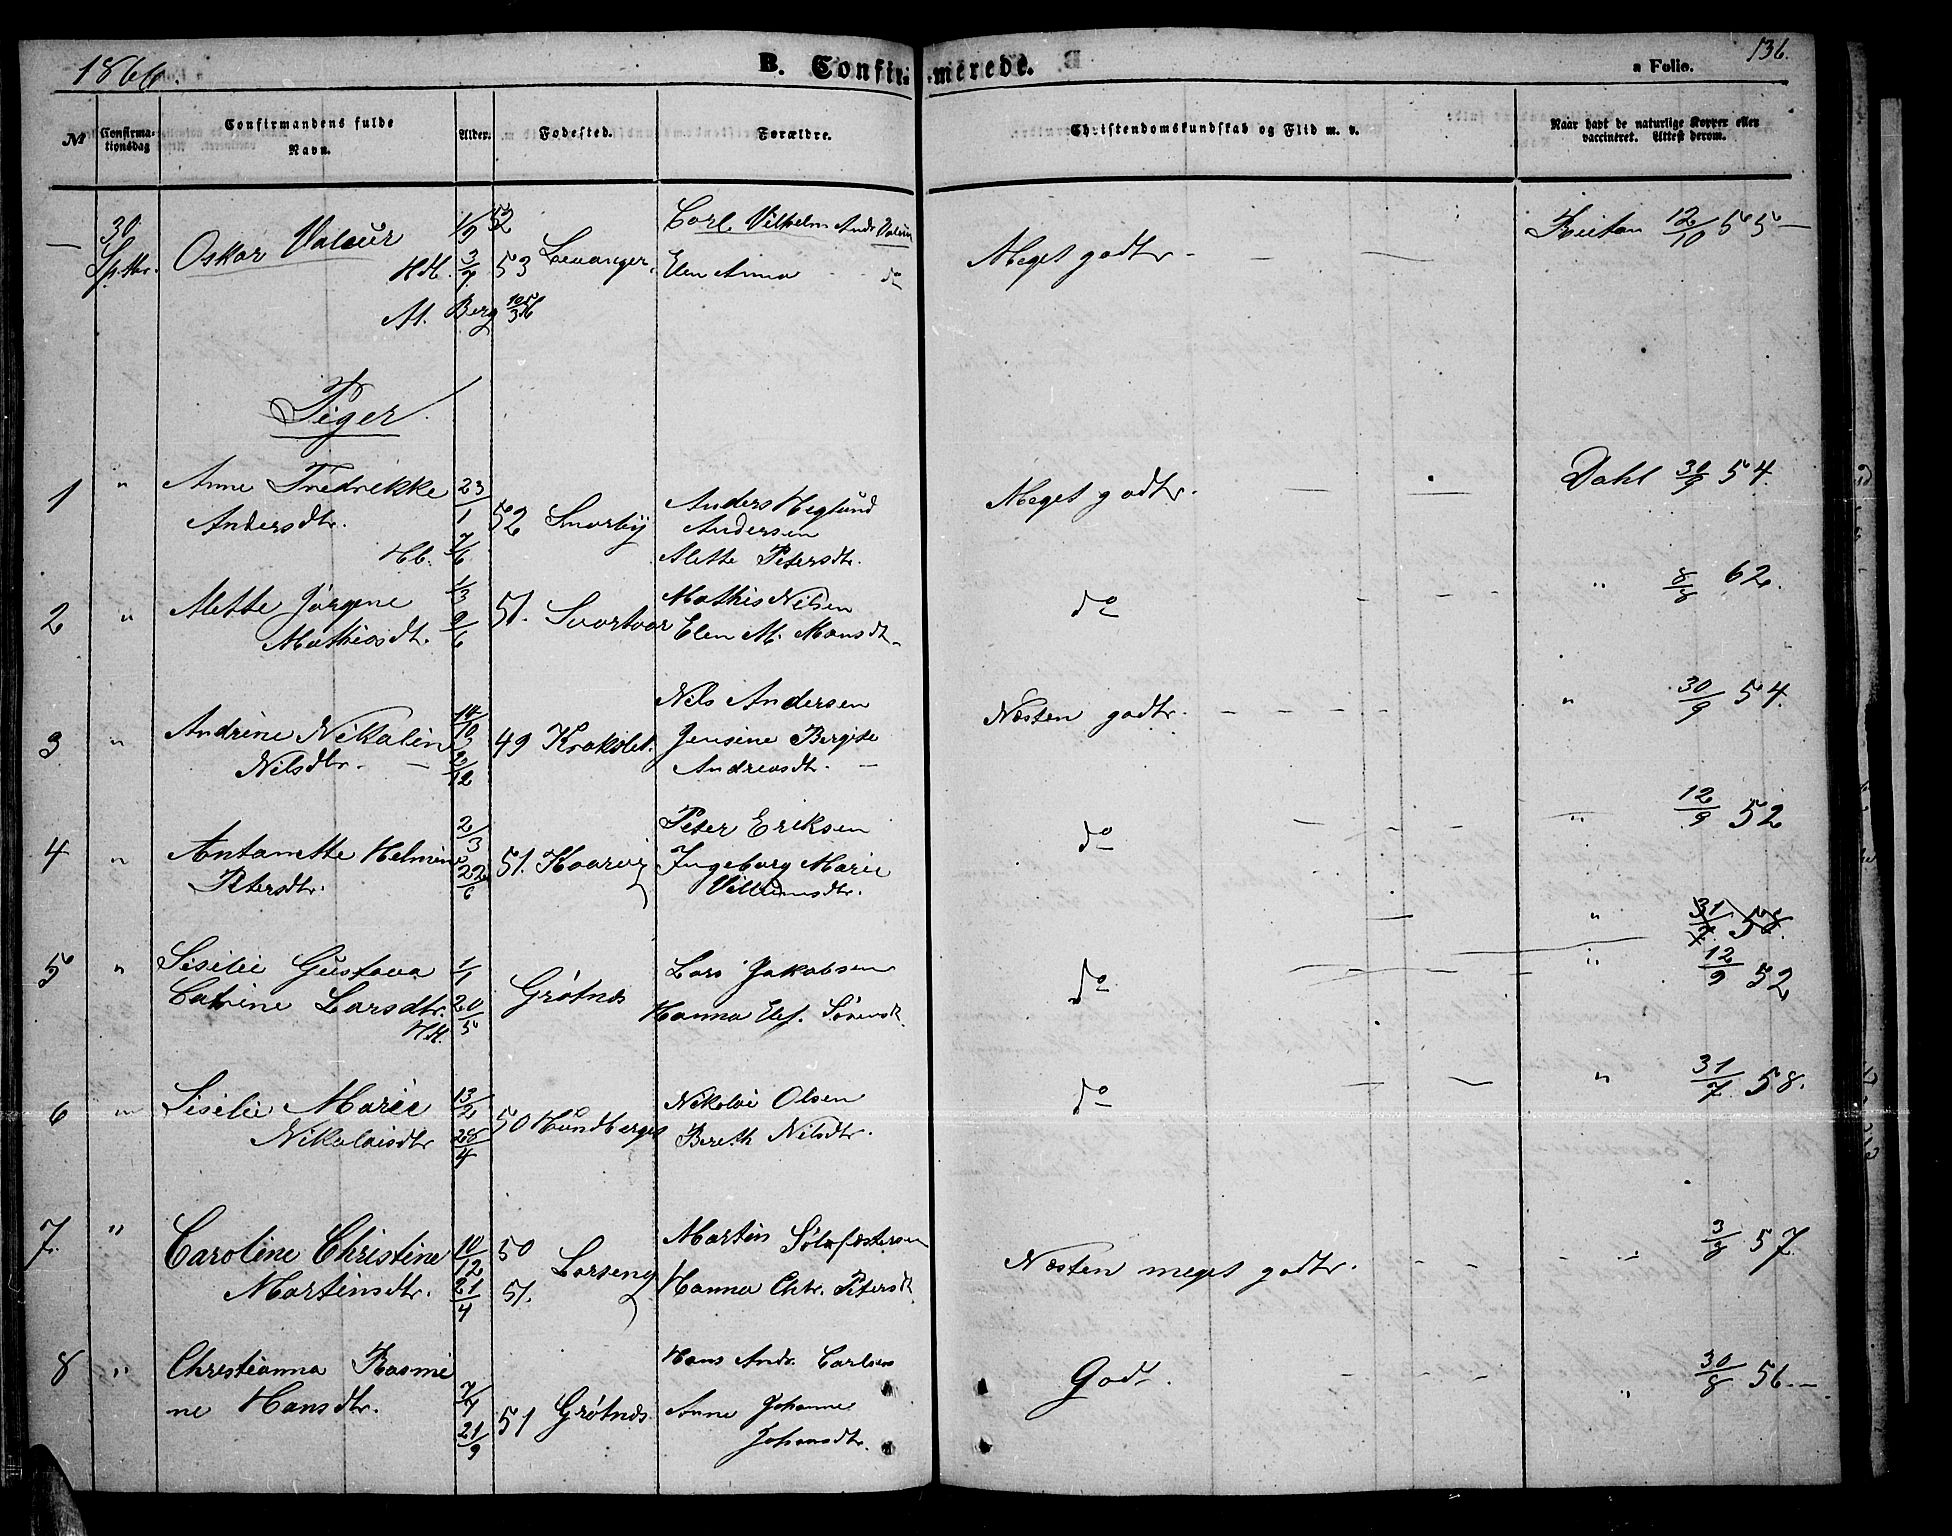 1866.
B. Confirmerede.
a Folio.
136.
No
Confirmationsdag
Confirmandens fulde Navn.
Alder.
Fødested.
Forældre.
Christendomskundskab og Flid m. v.
Naar havt de naturlige Kopper eller vaccineret. Attest derom.
30 Sptbr. Oskar Valeur 1/9 52
HH. 3/7 53 Levanger
At. Berg 10/3 56
Carl Vilhelm Andr Valeur
Elen Anna do
Meget godt 12/10 55
Piger
1 " Anne Fredrikke Andersdtr. 23/1 52
Hb. 7/6
Anders Heglund
Andersen
Alette Petersdtr.
Meget godt. Dahl 30/9 54.
2 " Mette Jørgine Mathisdtr. 1/3 51. Svartvar
9/6
Mathis Nilsen
Elen M. Monsdt
do " 8/8 62.
3 " Andrine Nikolin Nilsdtr. 14/10 49
2/12
Nils Andersen
Jensine Bergite
Andreasdtr.
Næsten godt. " 30/9 54.
4 " Antonette Helmine Petersdtr. 2/3 51. Kaarvig
22/6
Peter Eriksen
Ingeborg Marie
Villumsdtr.
do " 12/9 52
" 31/7 58.
5 " Sisilie Gustava Catrine Larsdtr. HH. 1/1 20/5 Grøtnæs
Lars Jakobsen
Hanna Elis. Sørensd.
do " 12/9 52
6 " Sisilie Marie Nikolaisdtr 13/2 50 Hundberget
28/4
Nikolai Olsen
Bereth Nilsdtr.
do " 31/7 58.
7. " Caroline Christine Martinsdtr. 10/12 50
21/4 51. Larseng
Martin Sølfæstersen
Hanna Chr. Petersdt
Næsten meget godt. " 3/8 57
8 " Christianna Rasmine Hansdtr. 7/7 51 Grøtnæs
21/9
Hans Andr. Carlsen
Anne Johanne
Johansdtr.
Godt. " 30/8 56